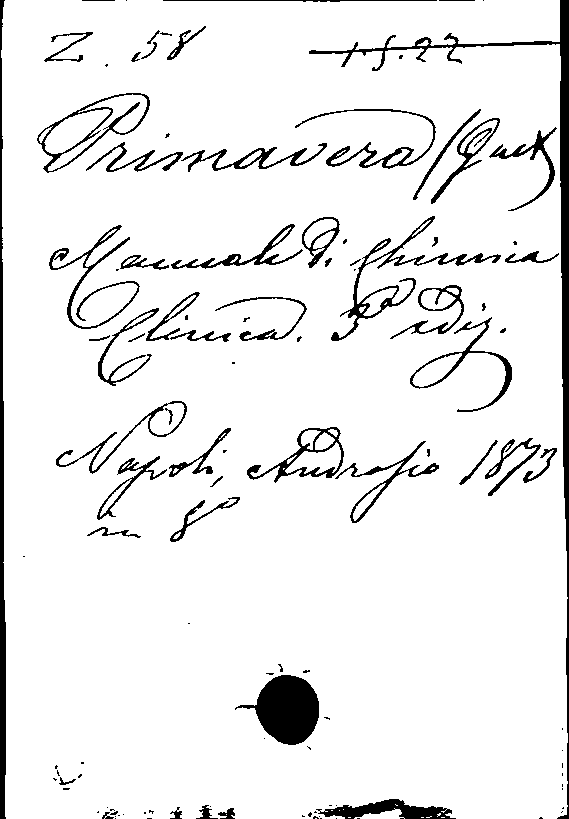 Z. 58 1.5.22
Primavera (Gaet)
Manuale di Chimica
Clinica. 3a ediz.
Napoli, Androsio 1873
in 8o